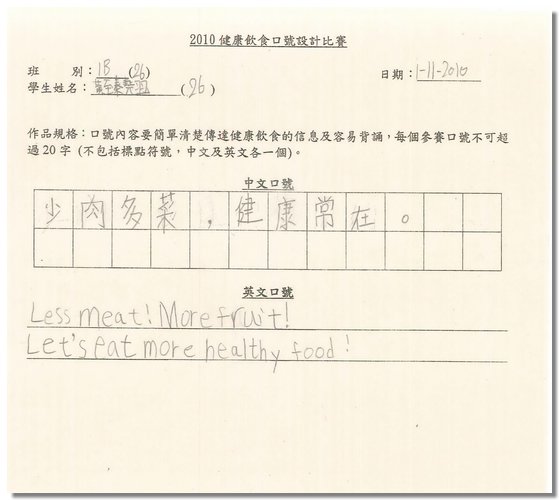 2010 健康飲食口號設計比賽
班 別：1B (26)
日期：1-11-2010
學生姓名： (26)
作品規格：口號內容要簡單清楚傳達健康飲食的信息及容易背誦，每個參賽口號不可超
過 20 字 (不包括標點符號，中文及英文各一個)。
中文口號
少肉多菜，健康常在。
英文口號
Less meat! More fruit!
Let's eat more healthy food!